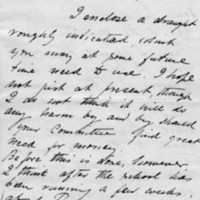 I enclose a draught
roughly indicated, which
you may at some future
time need to use, I hope
not just at present, though
I do not think it will do
any harm by and by should
your Committee find great
need for money.
Before this is done, however,
I think after the school has
been running a few weeks.